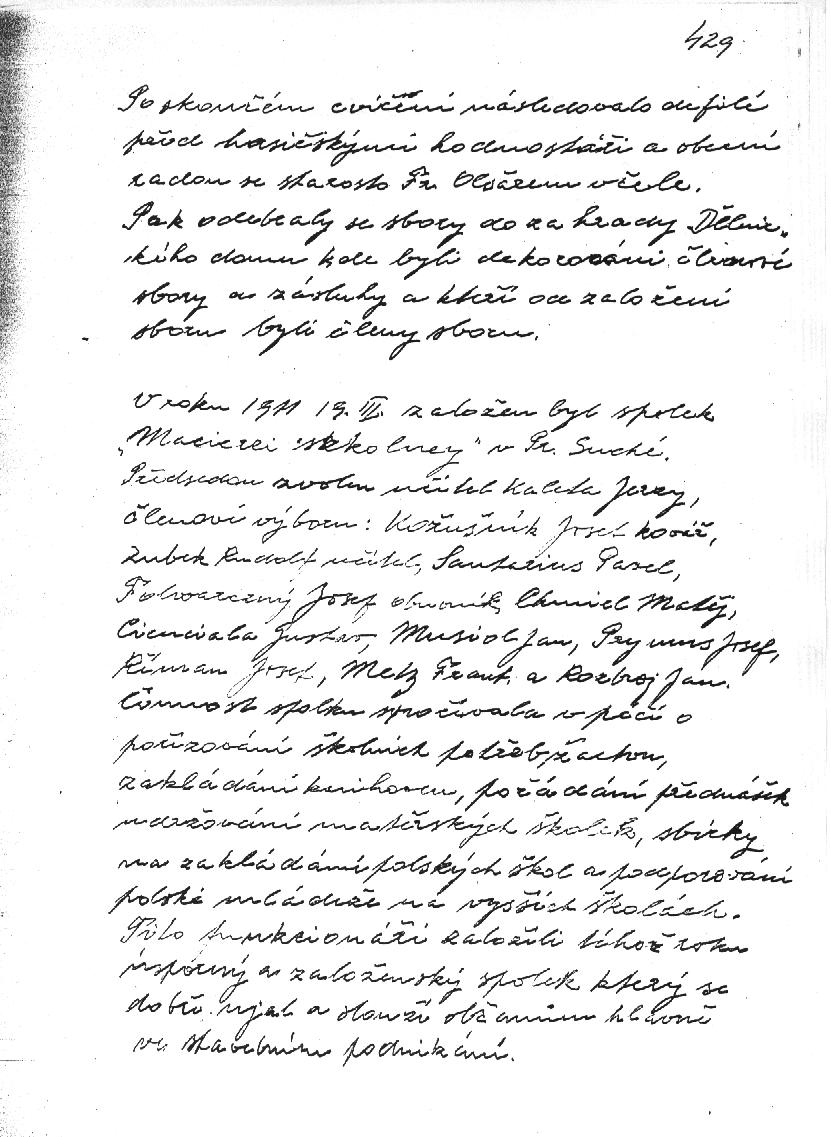 429
Po skončém cvičéní následovalo defilé
před hasičskými hodnostáři a obecní
radou se starosto Fr. Olšářem včele.
Pak odebraly se sbory do zahrady Dělnic„
kého domu kde byli dekorováni členové
sbory a zásluhy a kteří od založení
sboru byli členy sboru.
V roku 1911 19. III. založen byl spolek
„Macierzi szkolney" v Pr. Suché.
Předsedou zvolen učitel Kaleta Jerzy,
členové výboru: Kožušník Josef kovář,
Zubek Rudolf učitel, Santarius Pavel,
Folwarczný Josef obuvník, Chmiel Matěj,
Cienciala Gustav, Musiol Jan, Prymus Josef,
Říman Josef, Metz Frant. a Rozbroj Jan.
Činnost spolku spočívala v péči o
pořizování školních potřeb žactvu,
zakládání knihoven, pořádání přednášek
udržování mateřských školek, sbírky
na zakládání polských škol a podporování
polské mládeže na vyšších školách.
Tito funkcionáři založili téhož roku
úsporný a založenský spolek který se
dobře ujal a slouží občanům hlavně
ve stavebním podnikání.